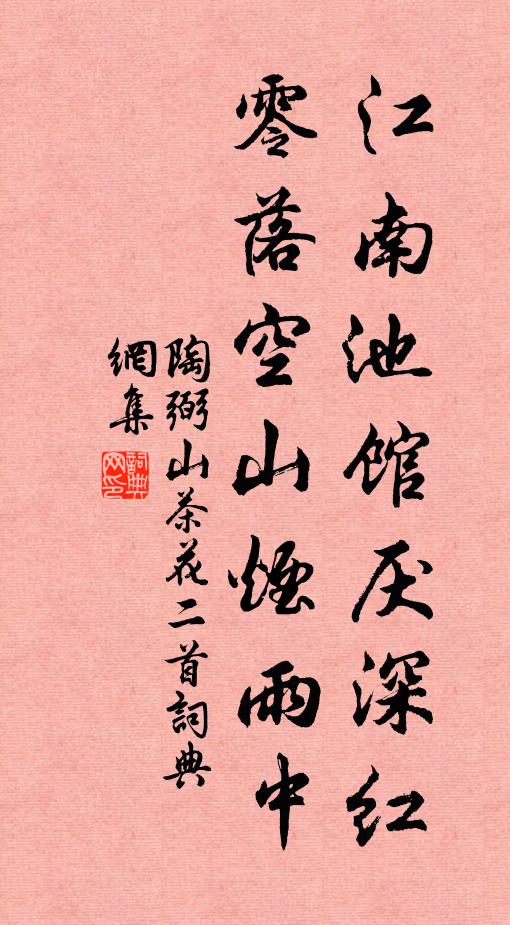 江南池馆厌深红
零落空山煙雨中
陶弼山茶花二首詞典
網集
詞典
网印